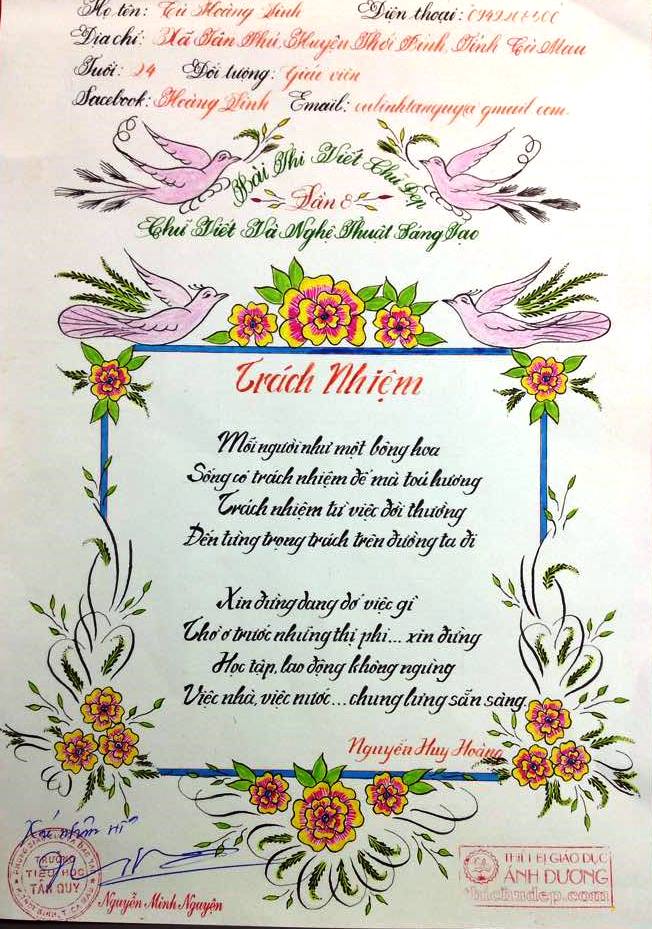 Họ tên: Từ Hoàng Linh Điện thoại:
Địa chỉ: Xã Tân Phú, Huyện Thới Bình, Tỉnh Cà Mau
Tuổi: 24 Đối tượng: Giáo viên
Facebook: Hoàng Linh Email:
Hội Thi Viết Chữ Đẹp
Lần 8
Chữ Viết Và Nghệ Thuật Sáng Tạo
Trách Nhiệm
Mỗi người như một bông hoa
Sống có trách nhiệm để mà toả hương
Trách nhiệm từ việc đời thường
Đến từng trọng trách trên đường ta đi
Xin đừng dang dở việc gì
Thờ ơ trước những thị phi... xin đừng
Học tập, lao động không ngừng
Việc nhà, việc nước... chung lưng sẵn sàng.
Nguyễn Huy Hoàng
Xác nhận
TRƯỜNG
TIỂU HỌC
TÂN QUÝ
Nguyễn Minh Nguyên
THIẾT BỊ GIÁO DỤC
ÁNH DƯƠNG